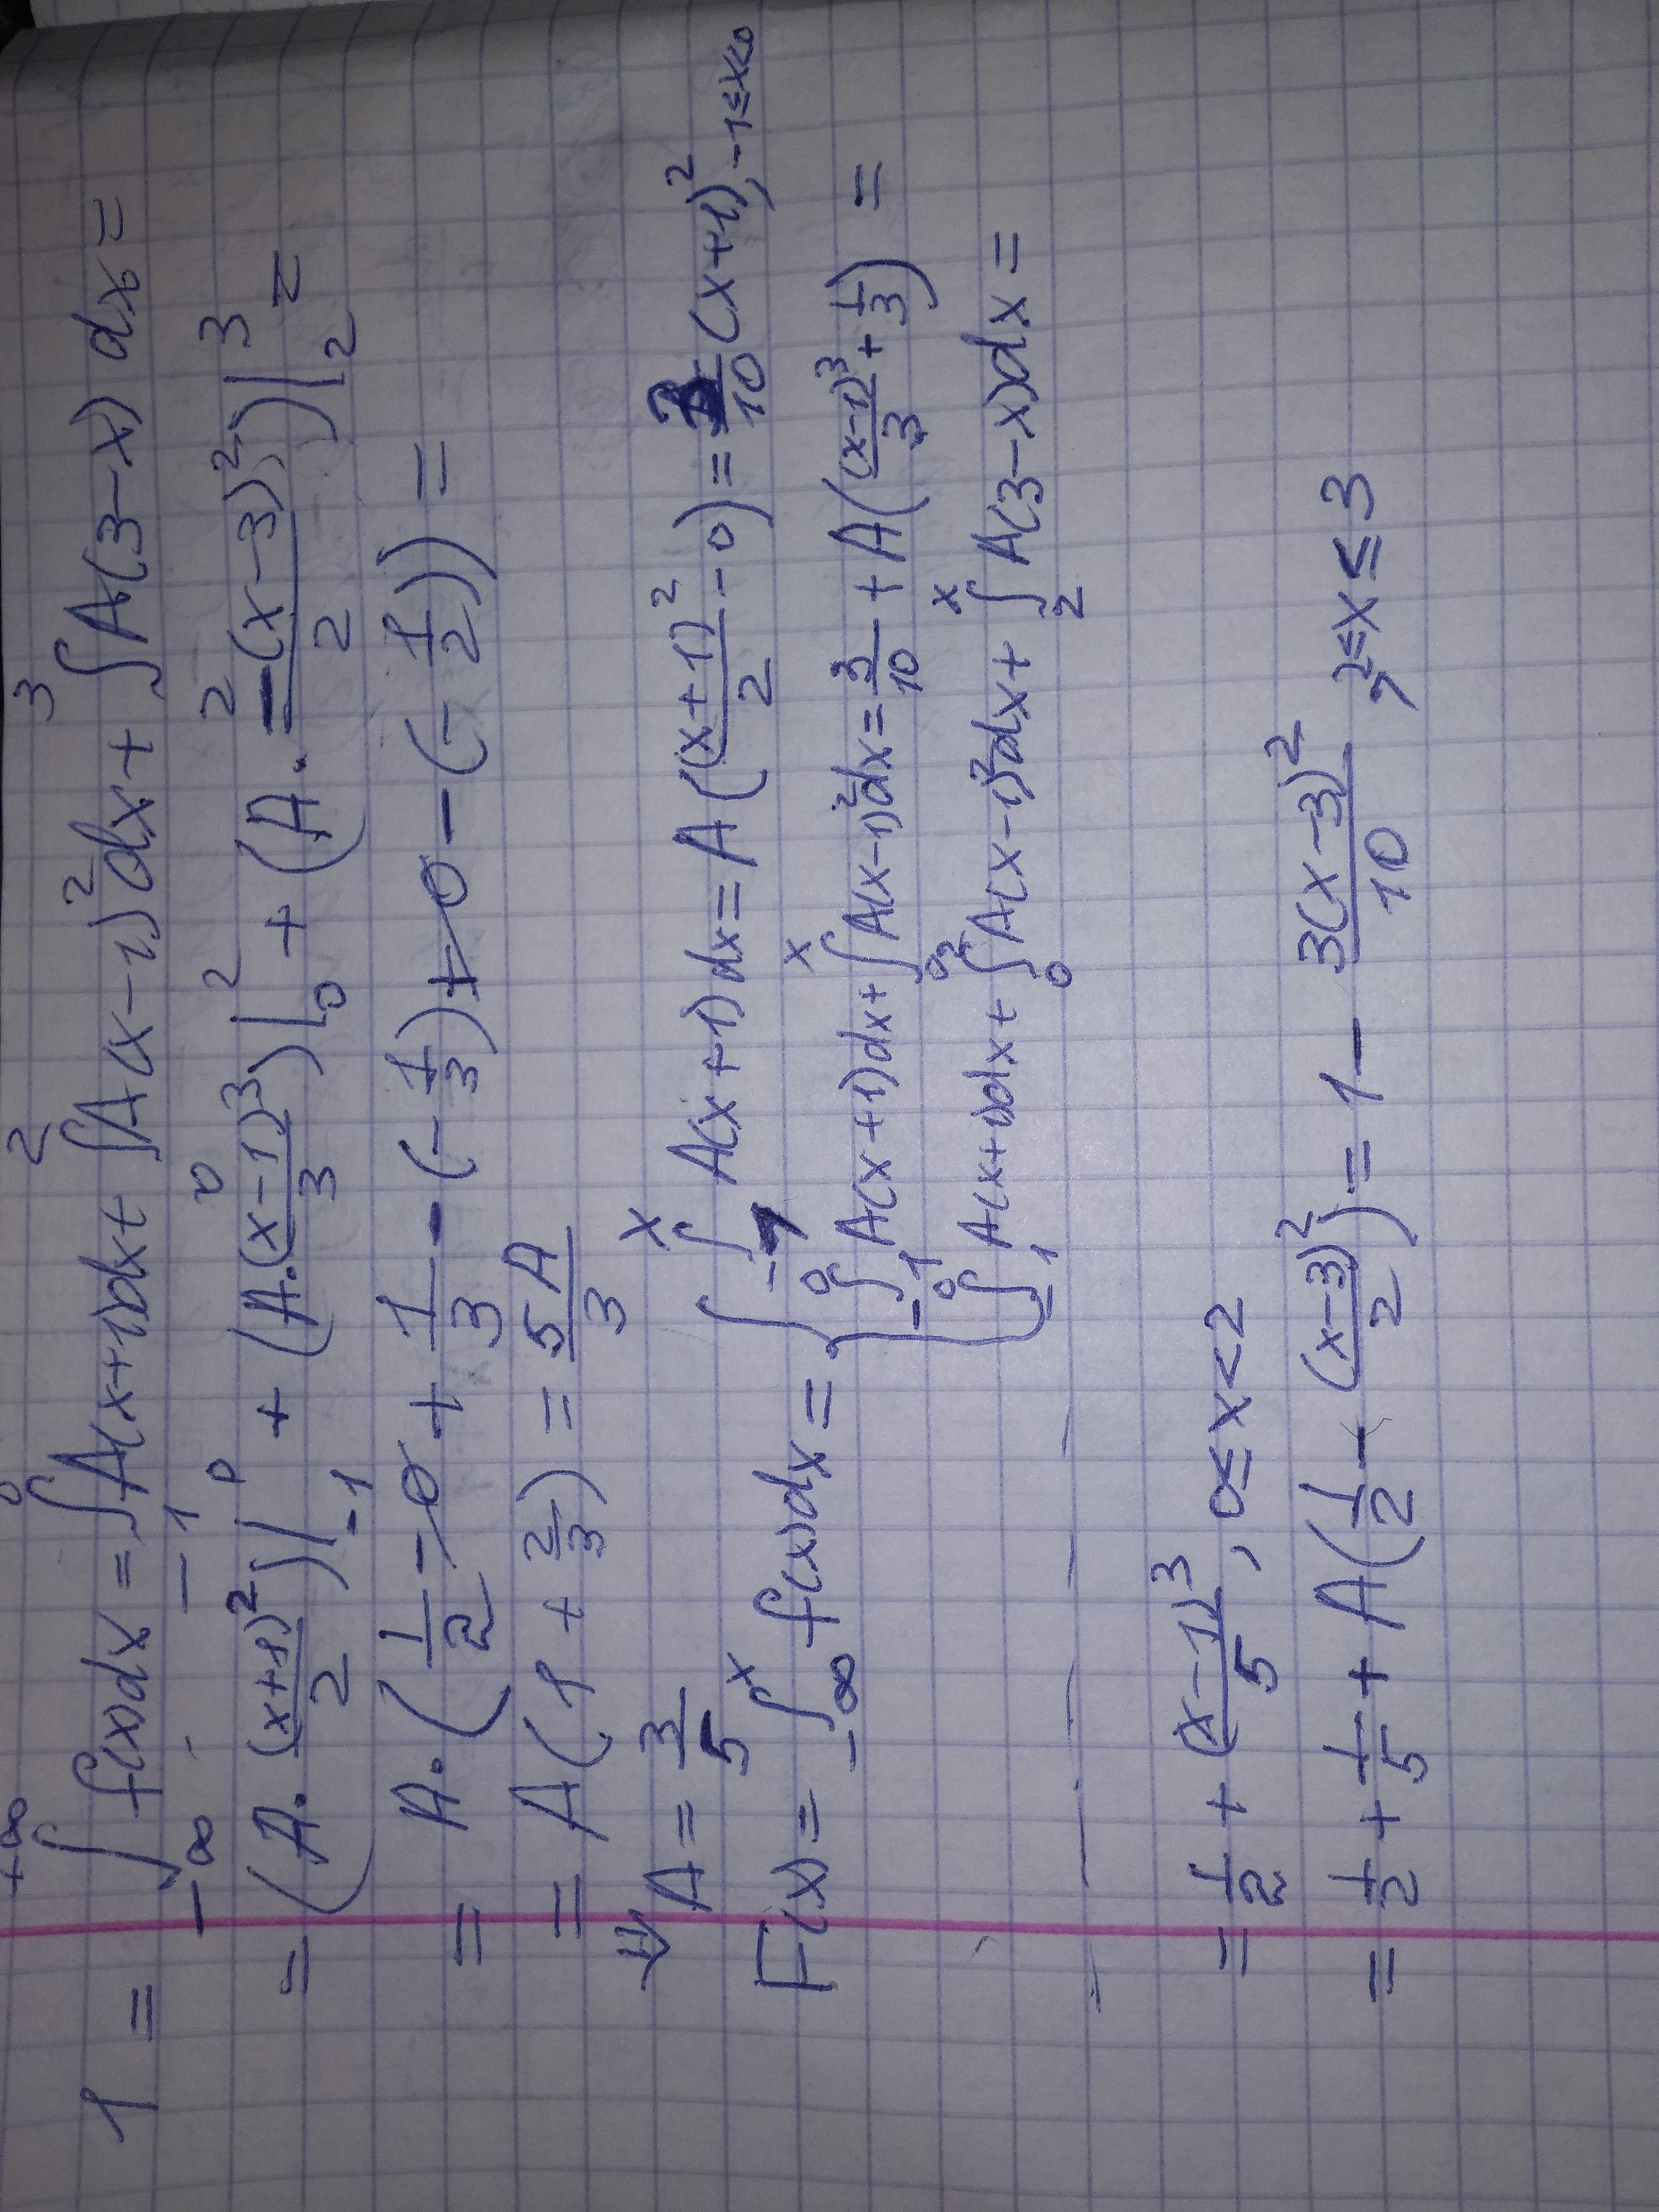 1 = ∫_{-∞}^{+∞} f(x)dx = ∫_{-1}^{0} A(x+1)dx + ∫_{0}^{2} A(x-1)²dx + ∫_{2}^{3} A(3-x) dx =
= (A · (x+1)²/2)|_{-1}^{0} + (A · (x-1)³/3)|_{0}^{2} + (A · -(x-3)²/2)|_{2}^{3} =
= A · (1/2 - 0 + 1/3 - (-1/3) + 0 - (-1/2)) =
= A(1 + 2/3) = 5A/3
⇓ A = 3/5
F(x) = ∫_{-∞}^{x} f(x)dx = { ∫_{-1}^{x} A(x+1)dx = A((x+1)²/2 - 0) = 3/10 (x+1)², -1≤x<0
∫_{-1}^{0} A(x+1)dx + ∫_{0}^{x} A(x-1)²dx = 3/10 + A((x-1)³/3 + 1/3) =
∫_{-1}^{0} A(x+1)dx + ∫_{0}^{2} A(x-1)²dx + ∫_{2}^{x} A(3-x)dx =
= 1/2 + (x-1)³/5, 0≤x<2
= 1/2 + 1/5 + A(1/2 - (x-3)²/2) = 1 - 3(x-3)²/10, 2≤x≤3